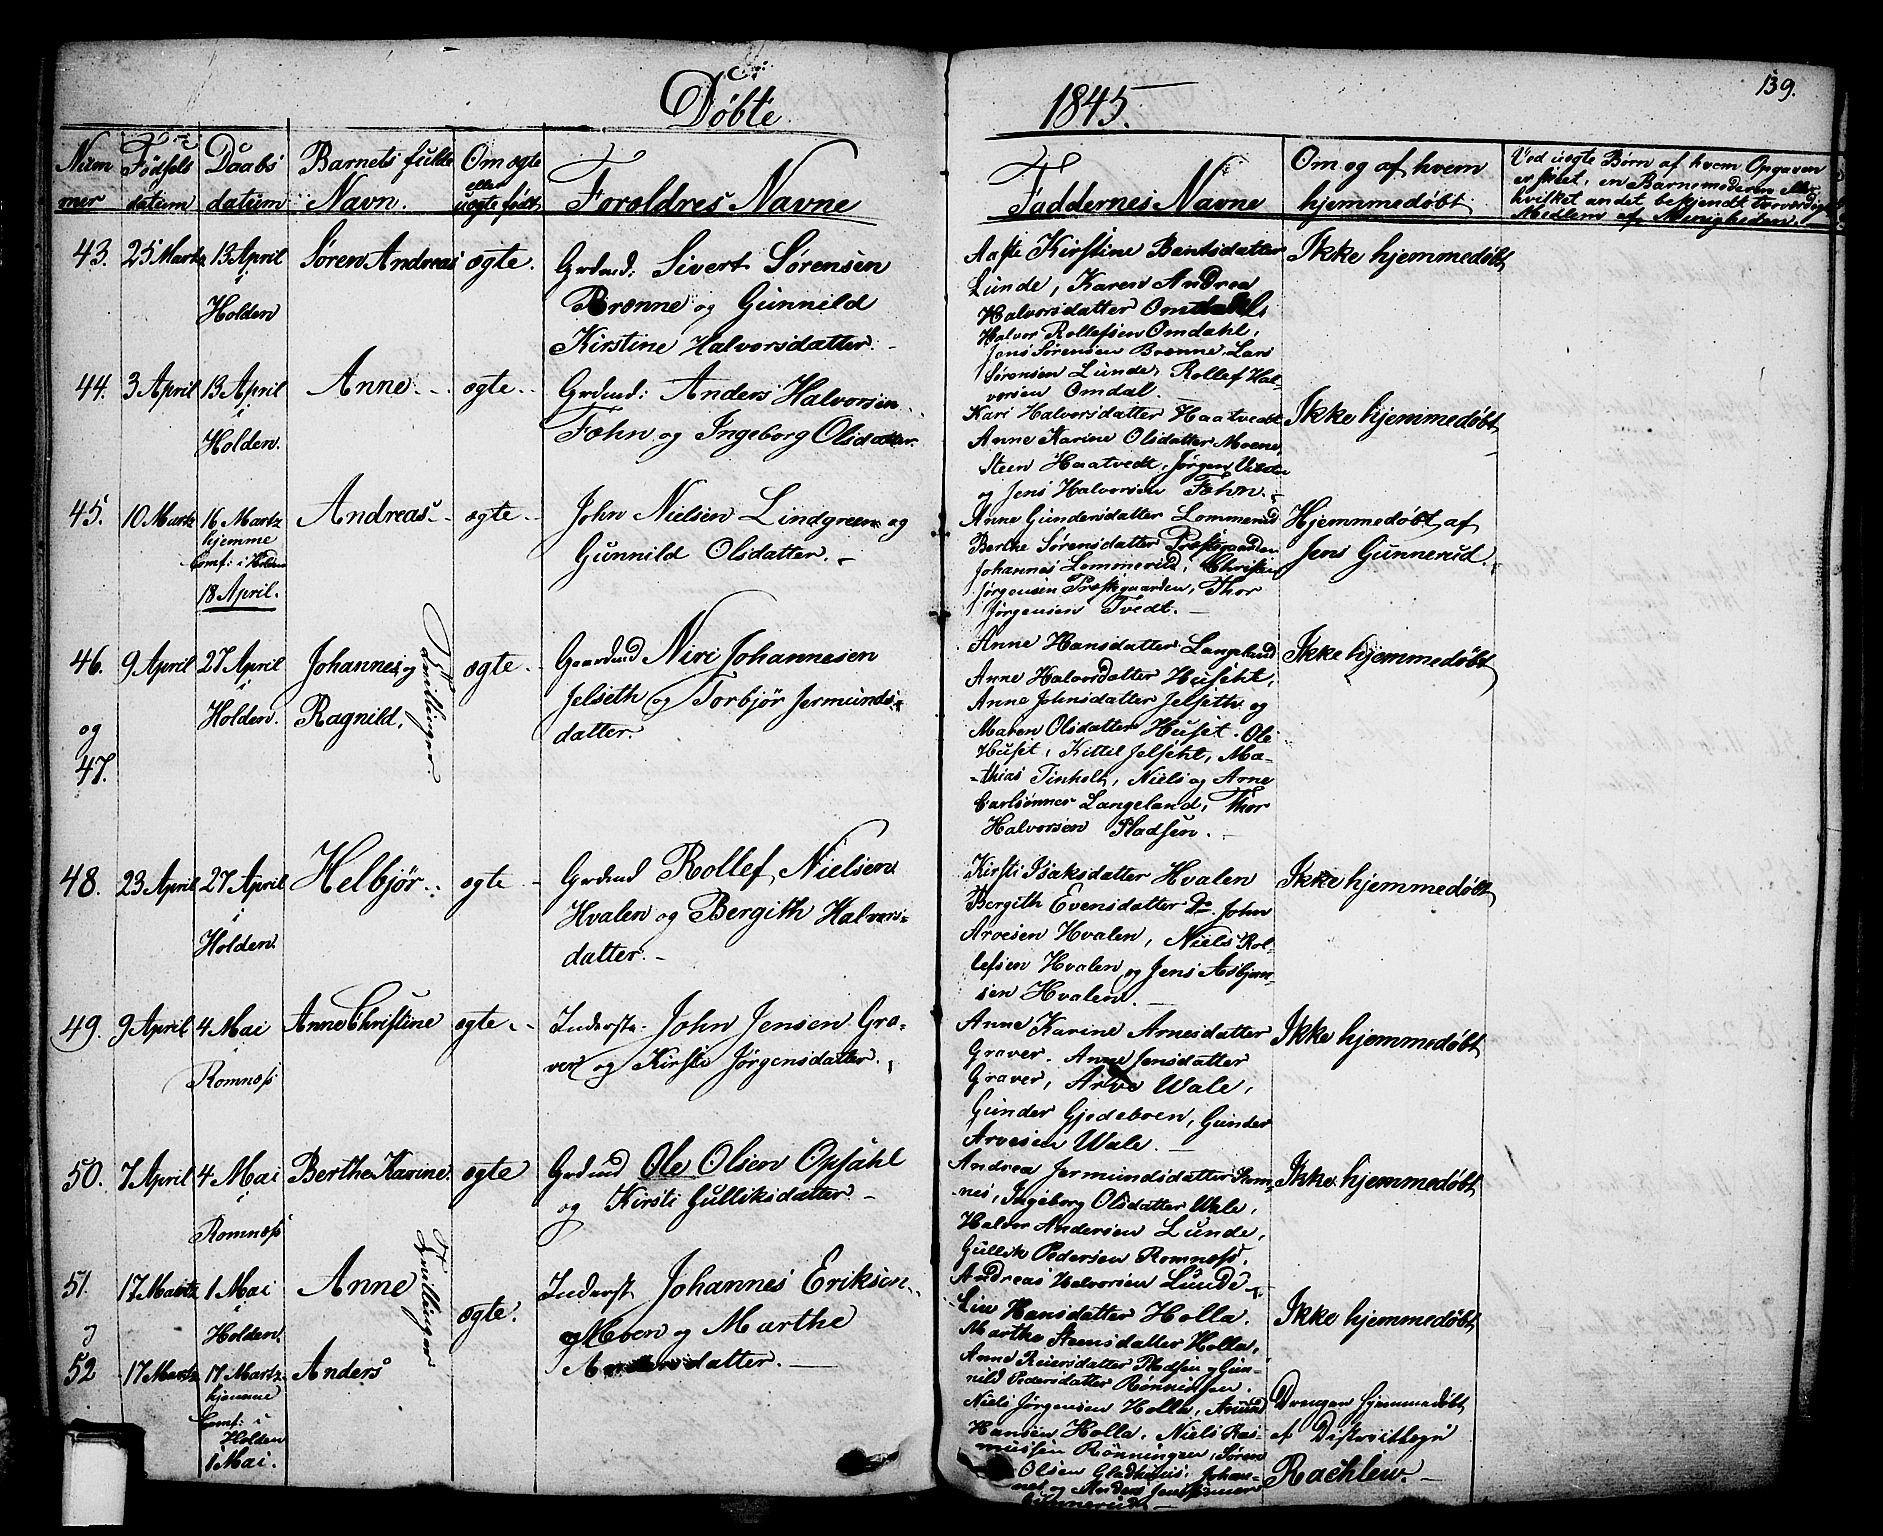 Døbte
1845.
139.
Num
mer
Fødsels
datum
Daabs
datum
Barnets fulde
Navn.
Om ægte
eller
uægte født.
Forældres Navne
Faddernes Navne
Om og af hvem
hjemmedøbt
Ved uægte Børn af hvem Opgaven
er skeet, en Barnemoderen eller
hvilket andet bekjendt troværdigt
Medlem af Menigheden.
43. 25 Martz 13 April
i
Holden
Søren Andreas ægte.
Grdmd: Sivert Sørensen
Brænne og Gunnild
Kirstine Halvorsdatter.
Aaste Kirstine Bentsdatter
Lunde, Karen Andrea
Halvorsdatter Omdahl,
Halvor Rollefsen Omdahl,
Jens Sørensen Brænne, Lars
Sørensen Lunde, Rollef Hal-
vorsen Omdal.
Ikke hjemmedøbt
44. 3 April 13 April
i
Holden.
Anne. ægte.
Grdmd: Anders Halvorsen
Fæhn og Ingeborg Olsdatter.
Kari Halvorsdatter Haatvedt
Anne Karine Olsdatter Moene,
Steen Haatvedt, Jørgen
og Jens Halvorsen Fæhn.
Ikke hjemmedøbt
45. 10 Martz 16 Martz
hjemme
Comf: i Holden
18 April.
Andreas ægte
John Nielsen Lindgreen og
Gunnild Olsdatter.
Anne Gundersdatter Lommerud
Berthe Sørensdatter Præstgaarden
Johannes Lommerud, Christen
Jørgensen Præstegaarden, Thor
Jørgensen Tvedt.
Hjemmedøbt af
Jens Gunnerud.
46. 9 April 27 April
i
Holden.
og
47.
Johannes og
Ragnild.
Tvillinger
ægte
Gaardmd Niri Johannesen
Jelseth og Torbjør Jermunds-
datter.
Anne Hansdatter Langeland
Anne Halvorsdatter Huseht,
Anne Johnsdatter Jelseth og
Maren Olsdatter Huset. Ole
Huset, Kittil Jelseht, Ma-
thias Tinholt, Niels og Arne
Carlsønner Langeland, Thor
Halvorsen Pladsen.
Ikke hjemmedøbt
48. 23 April 27 April
i
Holden
Helbjør. ægte
Grdmd Rollef Nielsen
Hvalen og Bergith Halvors-
datter.
Kirsti Isaksdatter Hvalen
Bergith Evensdatter Do. John
Arvesen Hvalen, Niels Rol-
lefsen Hvalen og Jens Asbjørn-
sen Hvalen.
Ikke hjemmedøbt
49. 9 April 4 Mai
i
Romnæss
Anne Christine ægte
Inderste. John Jensen Gra-
ver og Kirsti Jørgensdatter.
Anne Karine Arnesdatter
Graver. Anne Jensdatter
Graver, Arve Wale,
Gunder Gjedeboen, Gunder
Arvesen Wale.
Ikke hjemmedøbt
50. 7 April 4 Mai
i
Romnæss
Berthe Karine ægte
Grdmd Ole Olsen Opsahl
og Kirsti Gulliksdatter
Andrea Jermundsdatter Rom-
nes, Ingeborg Olsdatter Wale,
Halvor Andersen Lunde,
Gullik Pedersen Romness,
Andreas Halvorsen Lunde
Ikke hjemmedøbt
51. 17 Martz 1 Mai
i
Holden
Anne
Tvillinger
ægte.
og
52 17 Martz 17 Martz
hjemme
Comf: i
Holden
1 Mai.
Anders
Inderst Johannes Eriksen
Moen og Marthe
Liv Hansdatter Holla.
Marthe Steensdatter Holla,
Anne Reiersdatter Pladsen og Gun-
nild Pedersdatter Rønningen.
Niels Jørgensen Holla, Amund
Hansen Holla. Niels Ras-
mussen Rønningen, Søren
Olsen Gladhuus, Johan-
nes og Anders Jenssønner
Gunnerud.
Ikke hjemmedøbt
Drengen hjemmedøbt
af Distriktslæge
Rachlew.